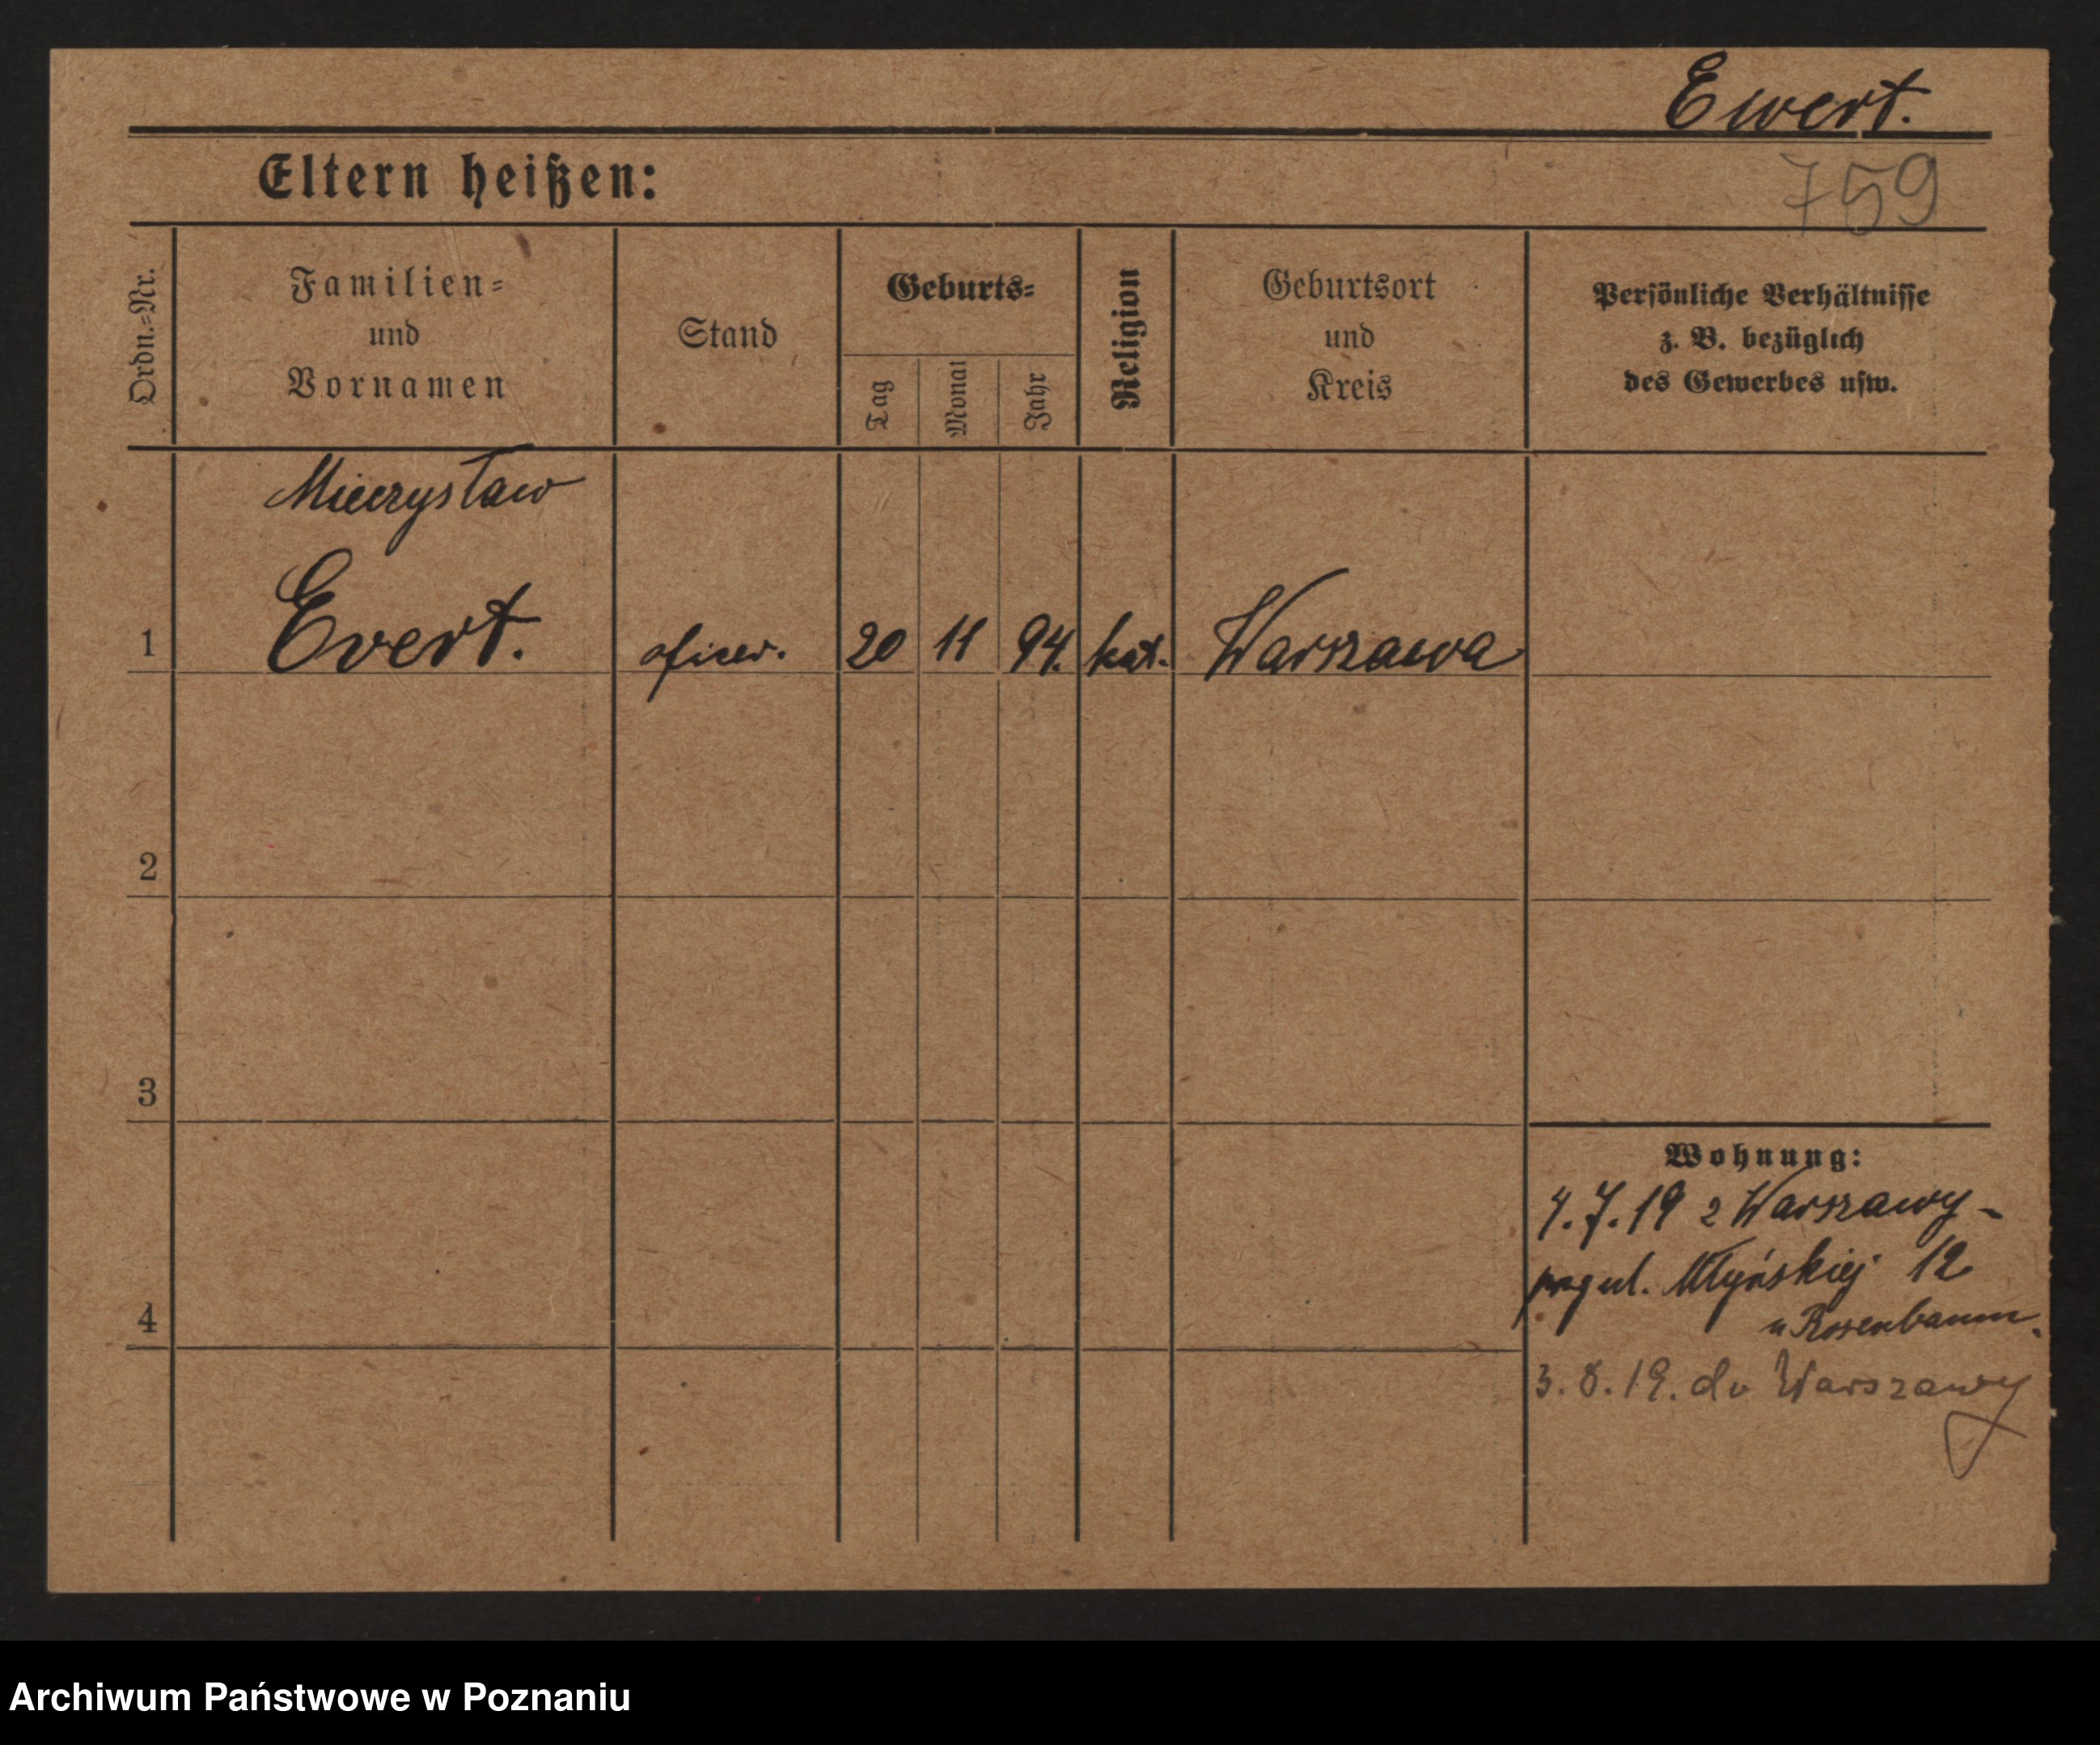 Ewert.
Eltern heißen:
759
Ordn.-Nr.
Familien-
und
Vornamen
Stand
Geburts-
Tag
Monat
Jahr
Religion
Geburtsort
und
Kreis
Persönliche Verhältnisse
z. B. bezüglich
des Gewerbes usw.
Mieczysław
1 Evert. oficer. 20 11 94. kat. Warszawa
2
3
4
Wohnung:
4.7.19 z Warszawy -
ul. Młyńskiej 12
u Rosenbaum.
3.8.19. do Warszawy
Archiwum Państwowe w Poznaniu